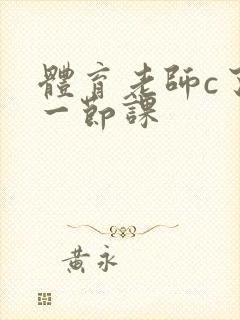 體育老師c了
一節課
黃永